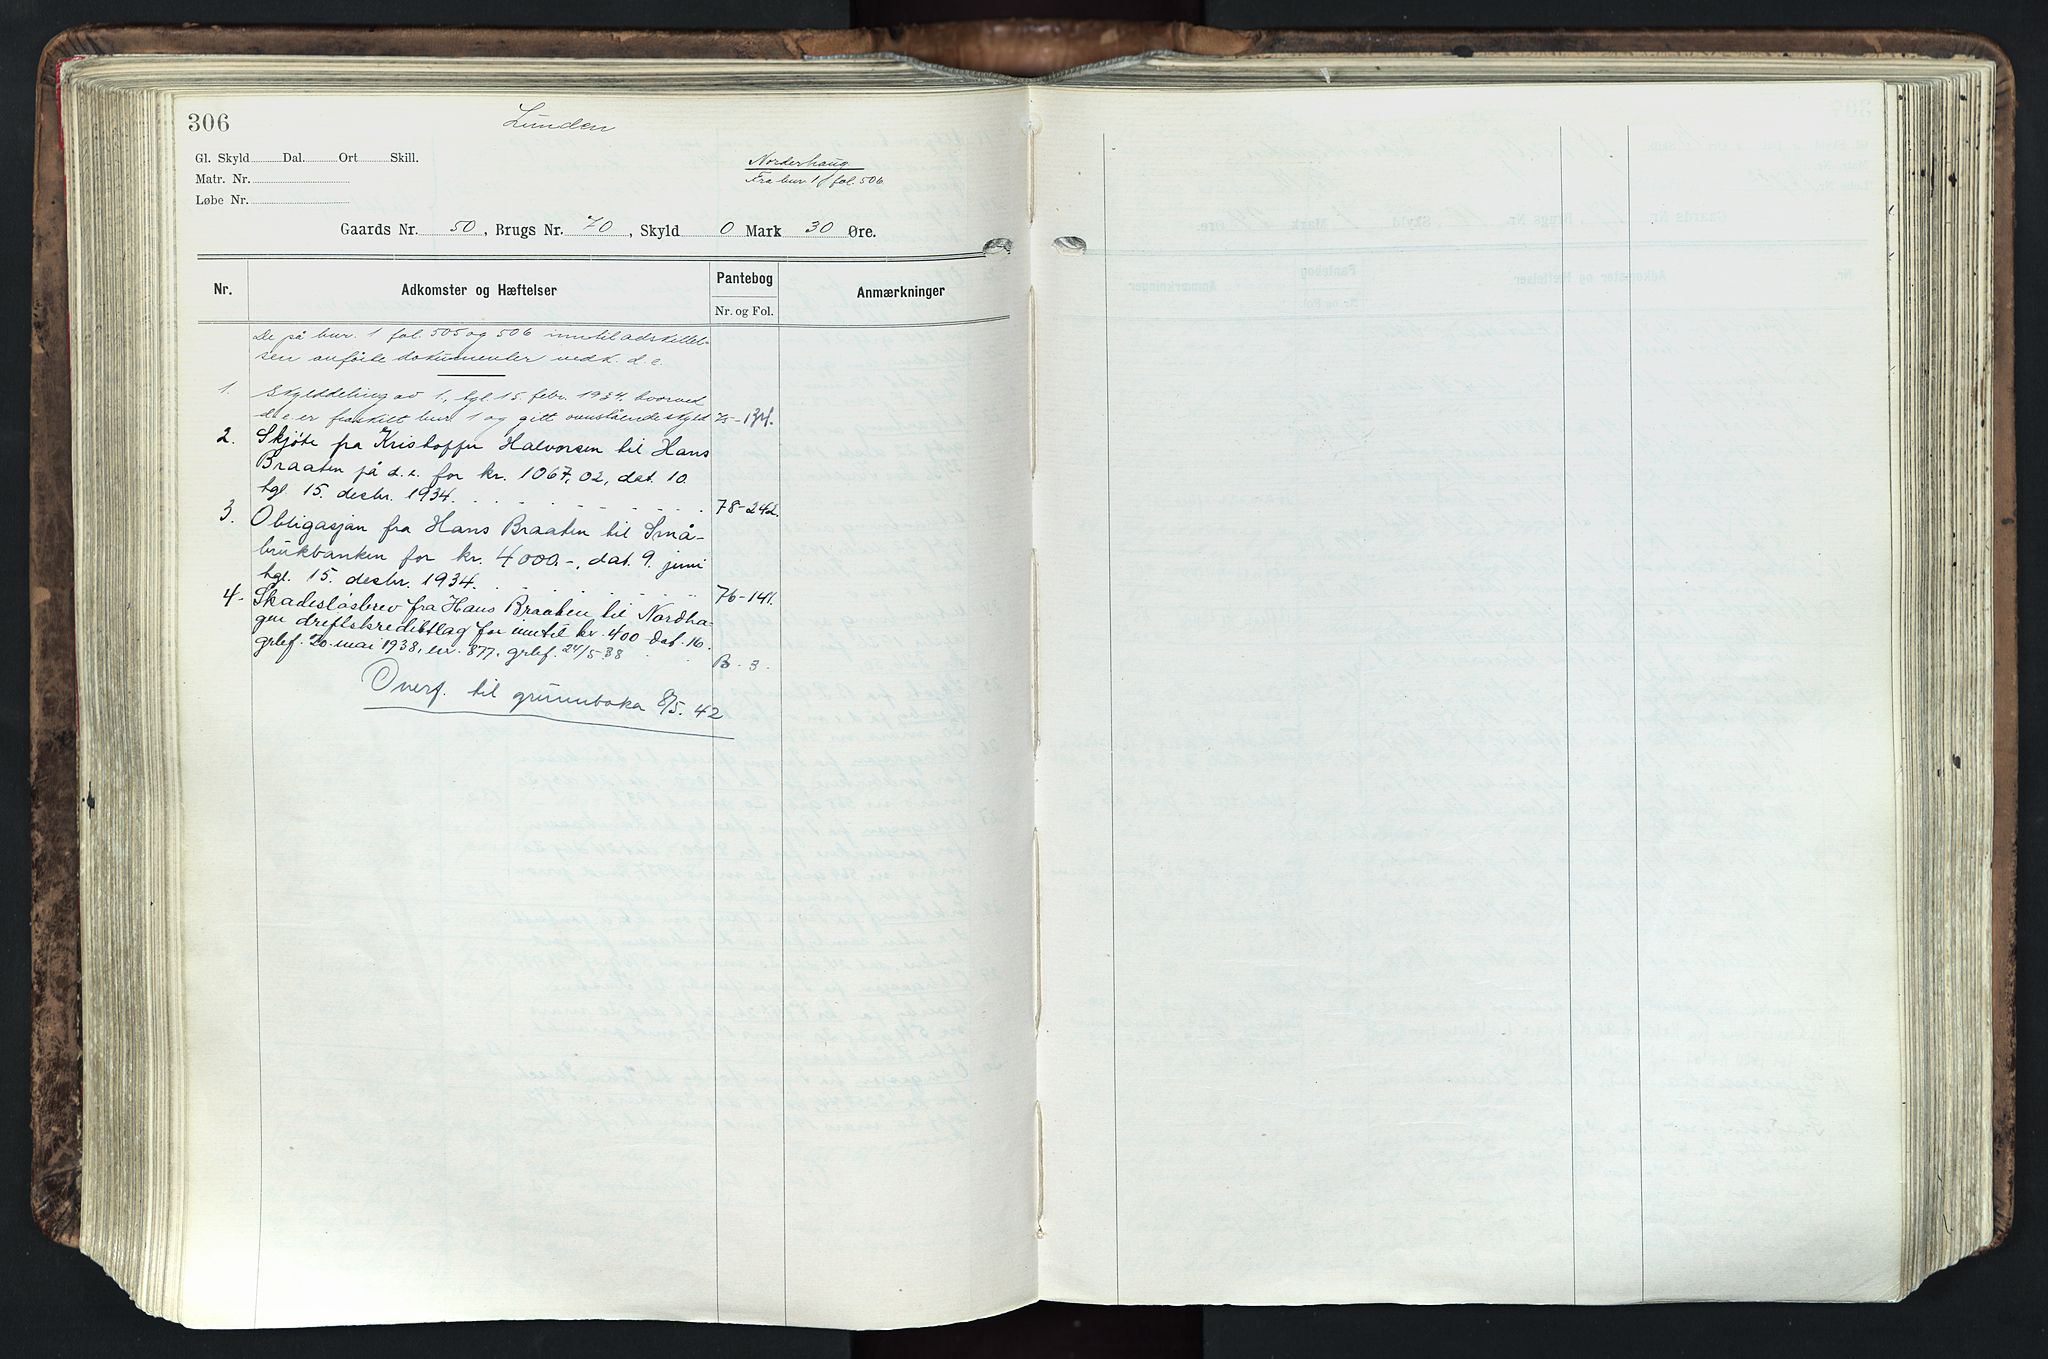 306
Lunden
Gl. Skyld Dal. Ort Skill.
Matr. Nr.
Løbe Nr.
Norderhaug
Fra bnr. 1 fol. 506
Gaards Nr. 50, Brugs Nr. 70, Skyld 0 Mark 30 Øre.
Nr. Adkomster og Hæftelser Pantebog Anmærkninger
Nr. og Fol.
De på bnr. 1 fol. 505 og 506 inntil adskillel-
sen anførte dokumenter vedk. d.e.
1. Skylddeling av 1, tgl 15. febr. 1934, hvorved
d.e. er fraskilt bnr. 1 og gitt ovenstående skyld 75-
2. Skjøte fra Kristoffer Halvorsen til Hans
Braaten på d.e. for kr. 1067,02, dat. 10
tgl 15. desbr. 1934. 78-242.
3. Obligasjon fra Hans Braaten til Små-
brukbanken for kr. 4000.-, dat. 9. juni
tgl. 15. desbr. 1934. 76-141.
4. Skadesløsbrev fra Hans Braaten til Nordha-
gen driftskredittlag for inntil kr. 400 dat. 16.
grlef. 20. mai 1938, nr. 877, grlef. 24/5 38 B. 3.
Overf. til grunnboka 8/5. 42